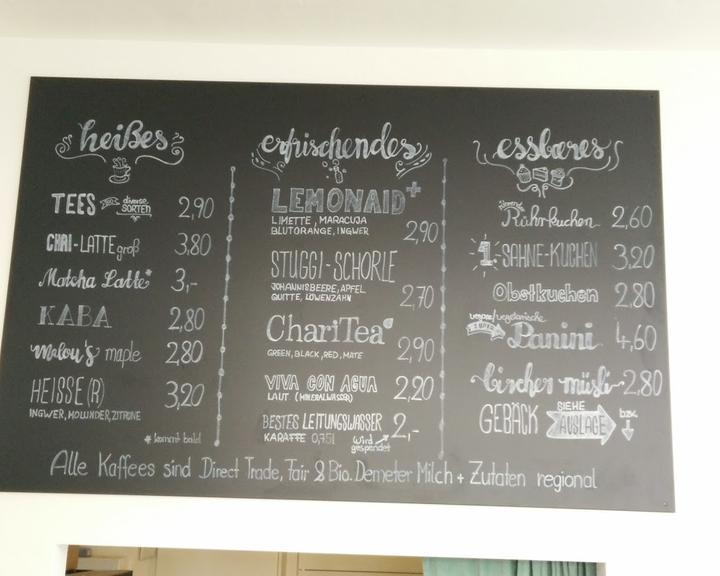 heißes
TEES diverse SORTEN 2,90
CHAI-LATTE groß 3,80
Matcha Latte* 3,-
KABA 2,80
Malou's maple 2,80
HEISSE(R) 3,20
INGWER, HOLUNDER, ZITRONE
* kommt bald
erfrischendes
LEMONAID+
LIMETTE, MARACUJA
BLUTORANGE, INGWER 2,90
STUGGI-SCHORLE
JOHANNISBEERE, APFEL
QUITTE, LÖWENZAHN 2,70
ChariTea
GREEN, BLACK, RED, MATE 2,90
VIVA CON AGUA 2,20
LAUT (MINERALWASSER)
BESTES LEITUNGSWASSER 2,-
KARAFFE 0,75l wird gespendet
essbares
Rührkuchen 2,60
1. SAHNE-KUCHEN 3,20
Obstkuchen 2,80
vegane/vegetarische
Panini 4,60
bircher müsli 2,80
GEBÄCK SIEHE AUSLAGE bzw.
Alle Kaffees sind Direct Trade, Fair & Bio. Demeter Milch + Zutaten regional